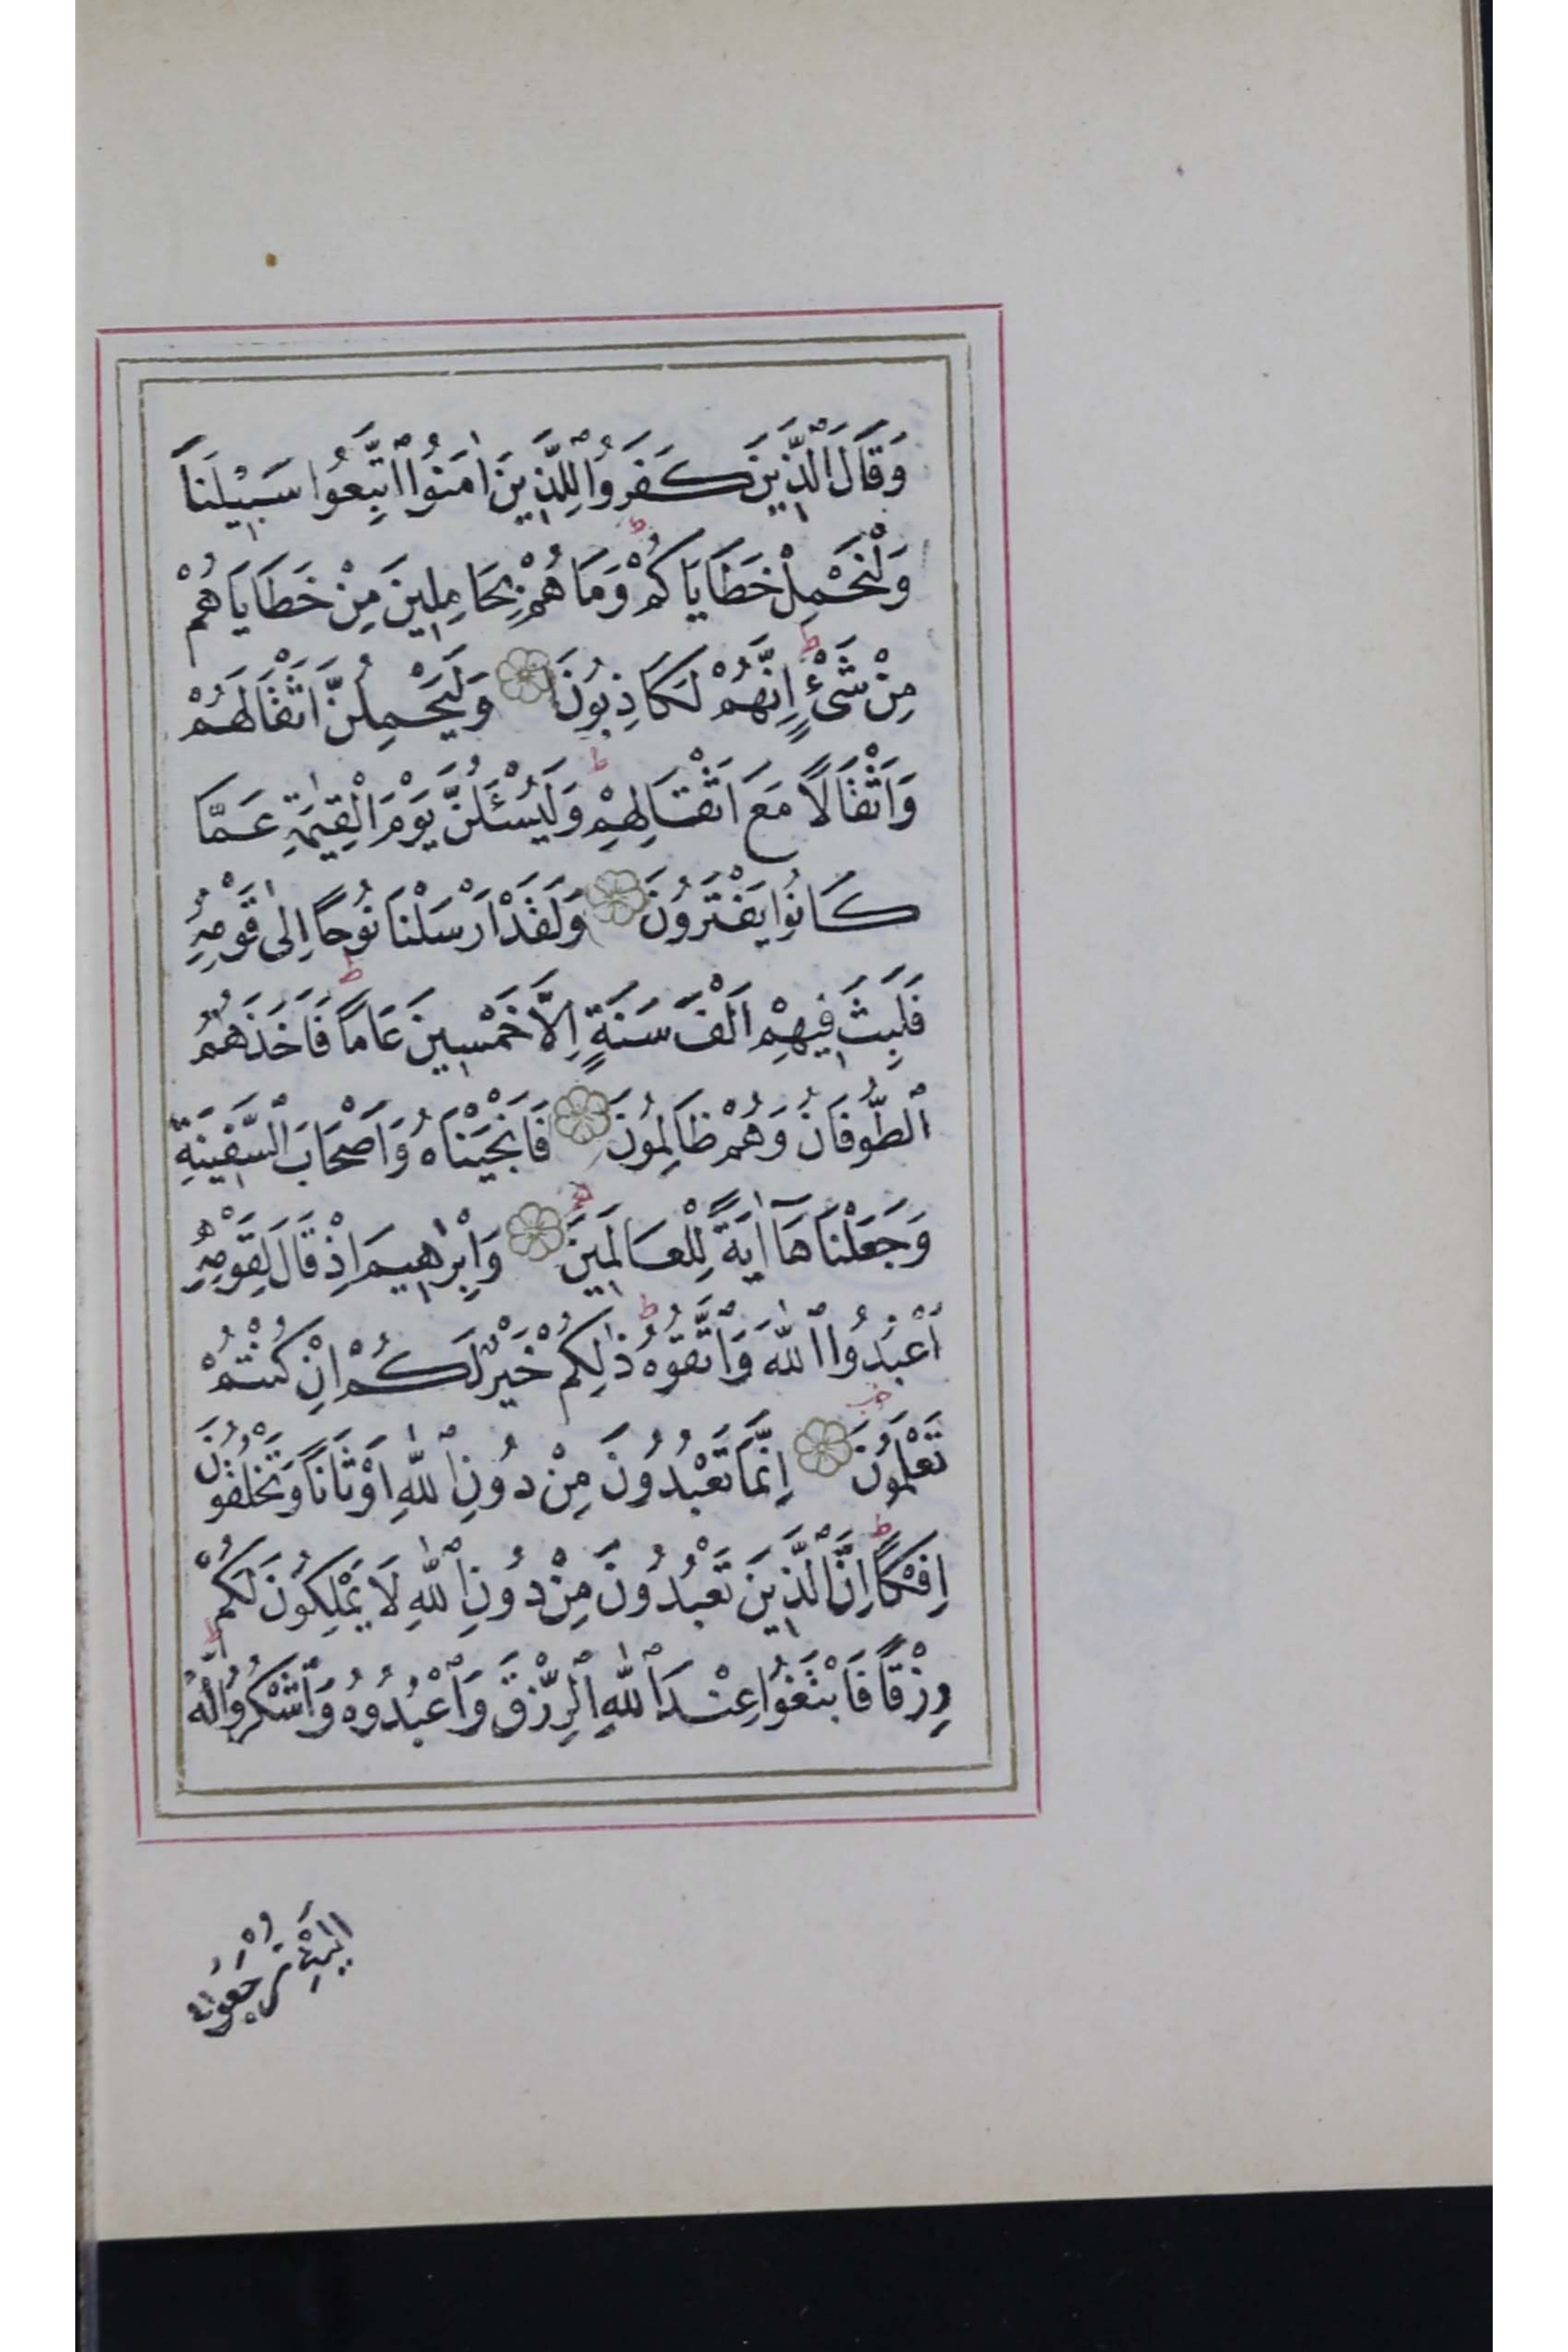 وَقَالَ ٱلَّذِينَ كَفَرُوا لِلَّذِينَ اٰمَنُوا ٱتَّبِعُوا سَبِيلَنَا
وَلْنَحْمِلْ خَطَايَاكُمْ ؕ وَمَا هُمْ بِحَامِلِينَ مِنْ خَطَايَاهُمْ
مِنْ شَىْءٍ ؕ اِنَّهُمْ لَكَاذِبُونَ وَلَيَحْمِلُنَّ اَثْقَالَهُمْ
وَاَثْقَالًا مَعَ اَثْقَالِهِمْ ؕ وَلَيُسْئَلُنَّ يَوْمَ الْقِيٰمَةِ عَمَّا
كَانُوا يَفْتَرُونَ وَلَقَدْ اَرْسَلْنَا نُوحًا اِلٰى قَوْمِهِ
فَلَبِثَ فِيهِمْ اَلْفَ سَنَةٍ اِلَّا خَمْسِينَ عَامًا ؕ فَاَخَذَهُمُ
ٱلطُّوفَانُ وَهُمْ ظَالِمُونَ فَاَنْجَيْنَاهُ وَاَصْحَابَ ٱلسَّفِينَةِ
وَجَعَلْنَاهَآ اٰيَةً لِلْعَالَمِينَ وَاِبْرٰهِيمَ اِذْ قَالَ لِقَوْمِهِ
ٱعْبُدُوا ٱللّٰهَ وَٱتَّقُوهُ ؕ ذٰلِكُمْ خَيْرٌ لَكُمْ اِنْ كُنْتُمْ
تَعْلَمُونَ اِنَّمَا تَعْبُدُونَ مِنْ دُونِ ٱللّٰهِ اَوْثَانًا وَتَخْلُقُونَ
اِفْكًا ؕ اِنَّ ٱلَّذِينَ تَعْبُدُونَ مِنْ دُونِ ٱللّٰهِ لَا يَمْلِكُونَ لَكُمْ
رِزْقًا فَابْتَغُوا عِنْدَ ٱللّٰهِ ٱلرِّزْقَ وَٱعْبُدُوهُ وَٱشْكُرُوا لَهُ ؕ
اِلَيْهِ تُرْجَعُونَ